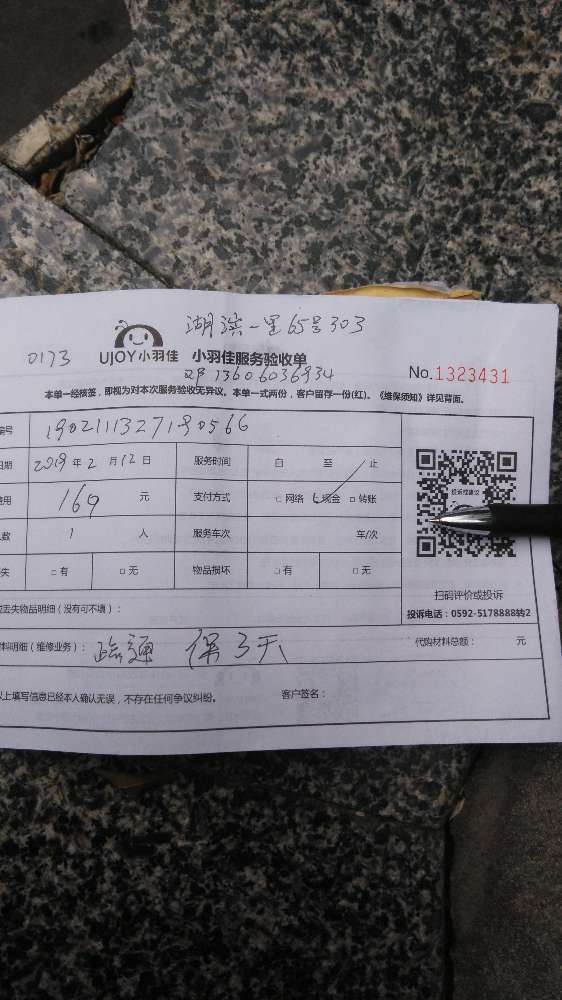 湖滨一里65号303
0173 UJOY小羽佳 小羽佳服务验收单
13606036934 No.1323431
本单一经核签,即视为对本次服务验收无异议。本单一式两份,客户留存一份(红)。《维保须知》详见背面。
编号
日期 2019年2月12日 服务时间 自 至 止
费用 160 元 支付方式 □网络 现金 □转账
人数 1 人 服务车次 车/次
投诉或建议
失 □有 □无 物品损坏 □有 □无
扫码评价或投诉
丢失物品明细(没有可不填): 投诉电话:0592-5178888转2
料明细(维修业务): 疏通 保3天 代购材料总额: 元
以上填写信息已经本人确认无误,不存在任何争议纠纷。 客户签名: